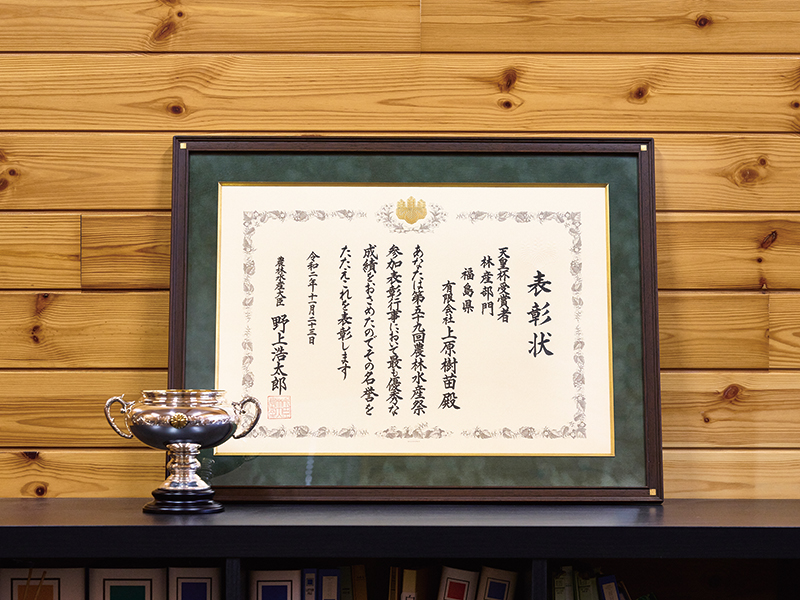 表彰状
天皇杯受賞者
林産部門
福島県
有限会社上原樹苗殿
あなたは第五十九回農林水産祭
参加表彰行事において最も優秀な
成績をおさめたのでその名誉を
たたえこれを表彰します
令和二年十一月二十三日
農林水産大臣 野上浩太郎